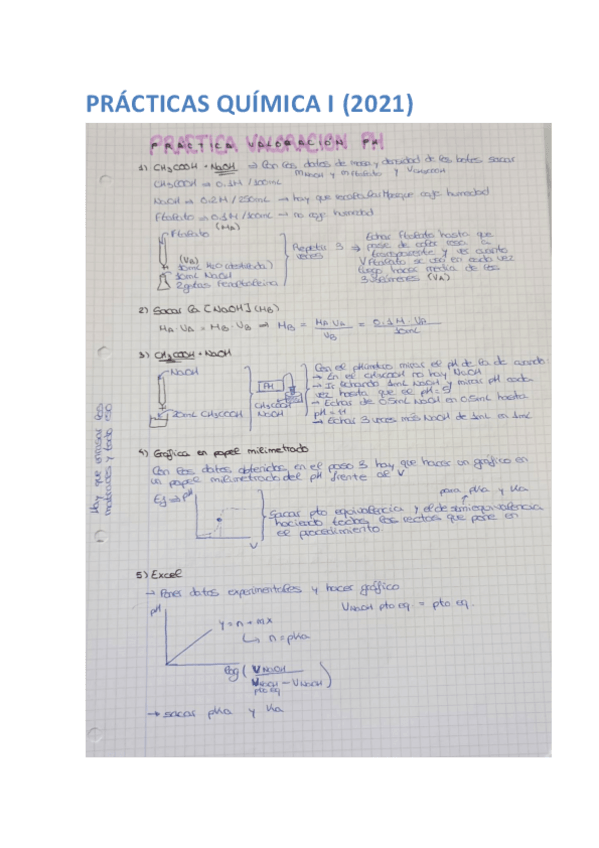 PRÁCTICAS QUÍMICA I (2021)
PRÁCTICA VALORACIÓN PH
1) CH3COOH + NaOH ⇒ Con los datos de masa y densidad de los botes sacar
mNaOH y mFtalato y VCH3COOH
CH3COOH ⇒ 0.1M / 100mL
NaOH ⇒ 0.2M / 250mL → hay que recoger porque coge humedad
Ftalato ⇒ 0.1M / 100mL → no coge humedad
Ftalato (MA)
(VA)
10mL H2O (destilada)
10mL NaOH
2 gotas fenolftaleína
Repetir 3 ⇒
veces
Echar Ftalato hasta que
pase de color rosa a
transparente y ver cuanto
V Ftalato se usa en cada vez
luego hacer media de los
3 volúmenes (VA)
2) Sacar la [NaOH] (MB)
MA·VA = MB·VB ⇒ MB = MA·VA / VB = 0.1M·VA / 10mL
3) CH3COOH + NaOH
NaOH
20mL CH3COOH
PH
CH3COOH
NaOH
Con el pHmetro mirar el pH de la de cuando:
→ En el CH3COOH no hay NaOH
→ Ir echando 1mL NaOH y mirar pH cada
vez hasta que el pH =
→ Echar de 0.5mL NaOH en 0.5mL hasta
pH = 11
→ Echar 3 veces más NaOH de 1mL en 1mL
Hay que enrasar los
matraces y todo eso
4) Gráfica en papel milimetrado
Con los datos obtenidos en el paso 3 hay que hacer un gráfico en
un papel milimetrado del pH frente al V
para pKa y Ka
Ej ⇒ pH
V
Sacar pto equivalencia y el de semiequivalencia
haciendo todas las rectas que pone en
el procedimiento
5) Excel
→ Poner datos experimentales y hacer gráfico
pH
VNaOH pto eq. = pto eq.
y = n + mx
↳ n = pKa
log ( VNaOH / VNaOH pto eq − VNaOH )
→ sacar pKa y Ka